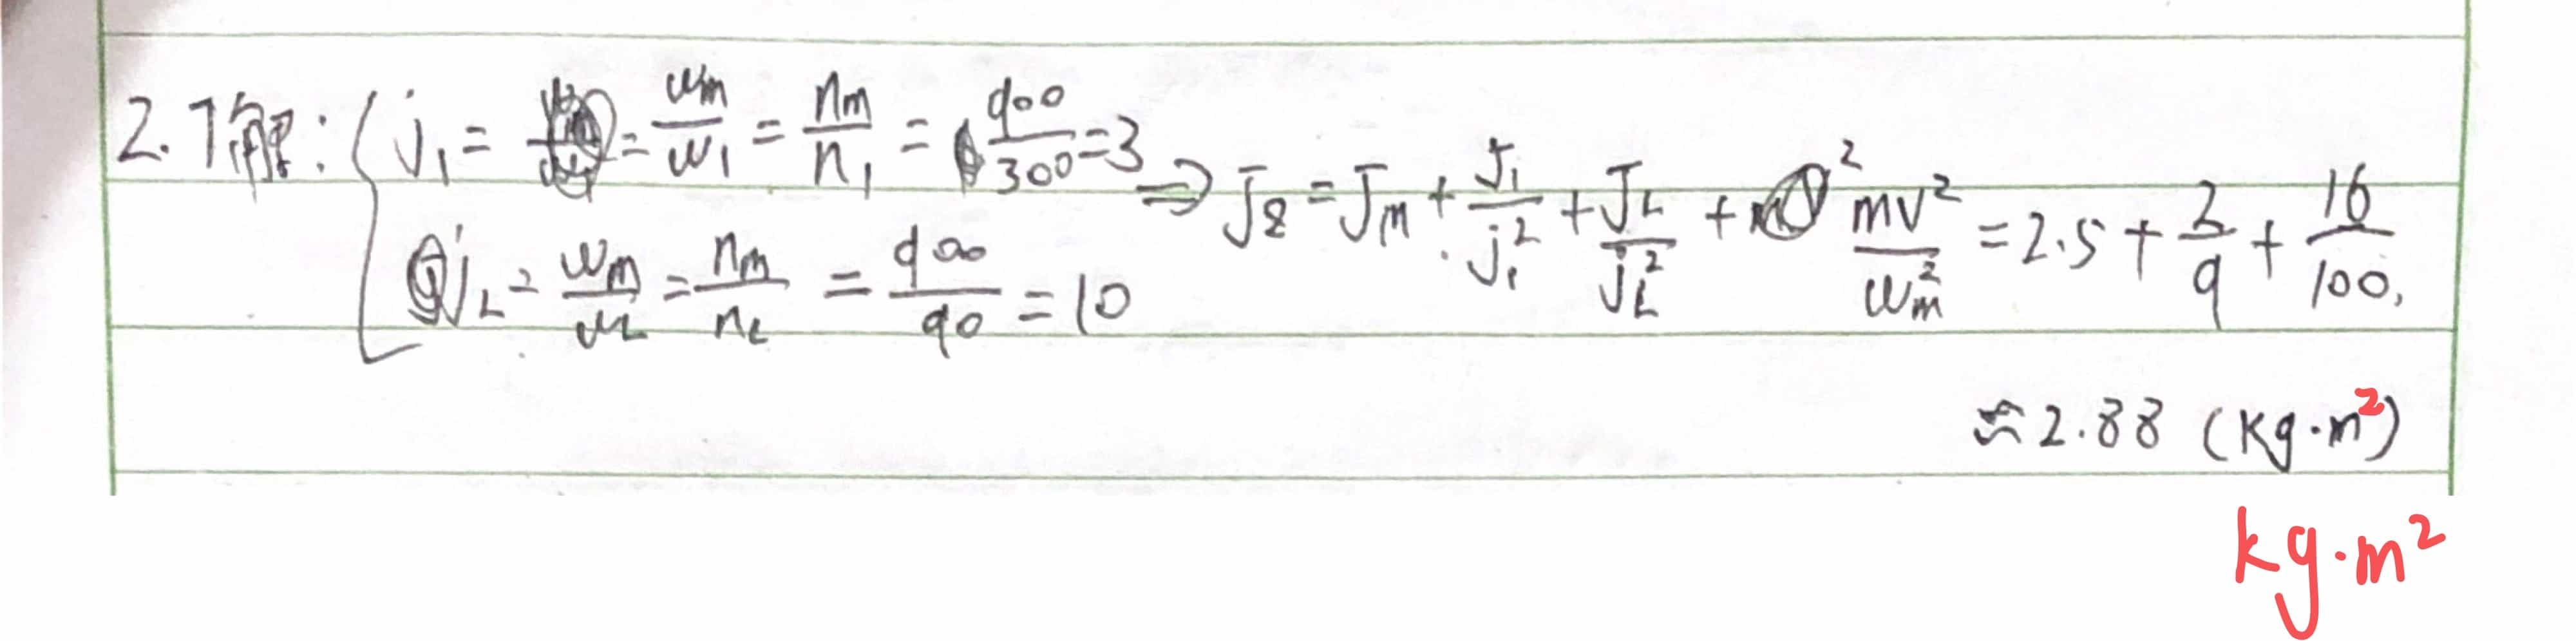 2.7解: { j₁ = ωm/ω₁ = nm/n₁ = 900/300 = 3
jL = ωm/ωL = nm/nL = 900/90 = 10
⇒ Jz = Jm + J₁/j₁² + JL/jL² + mv²/ωm² = 2.5 + 2/9 + 16/100.
≈ 2.88 (kg·m²)
kg·m²